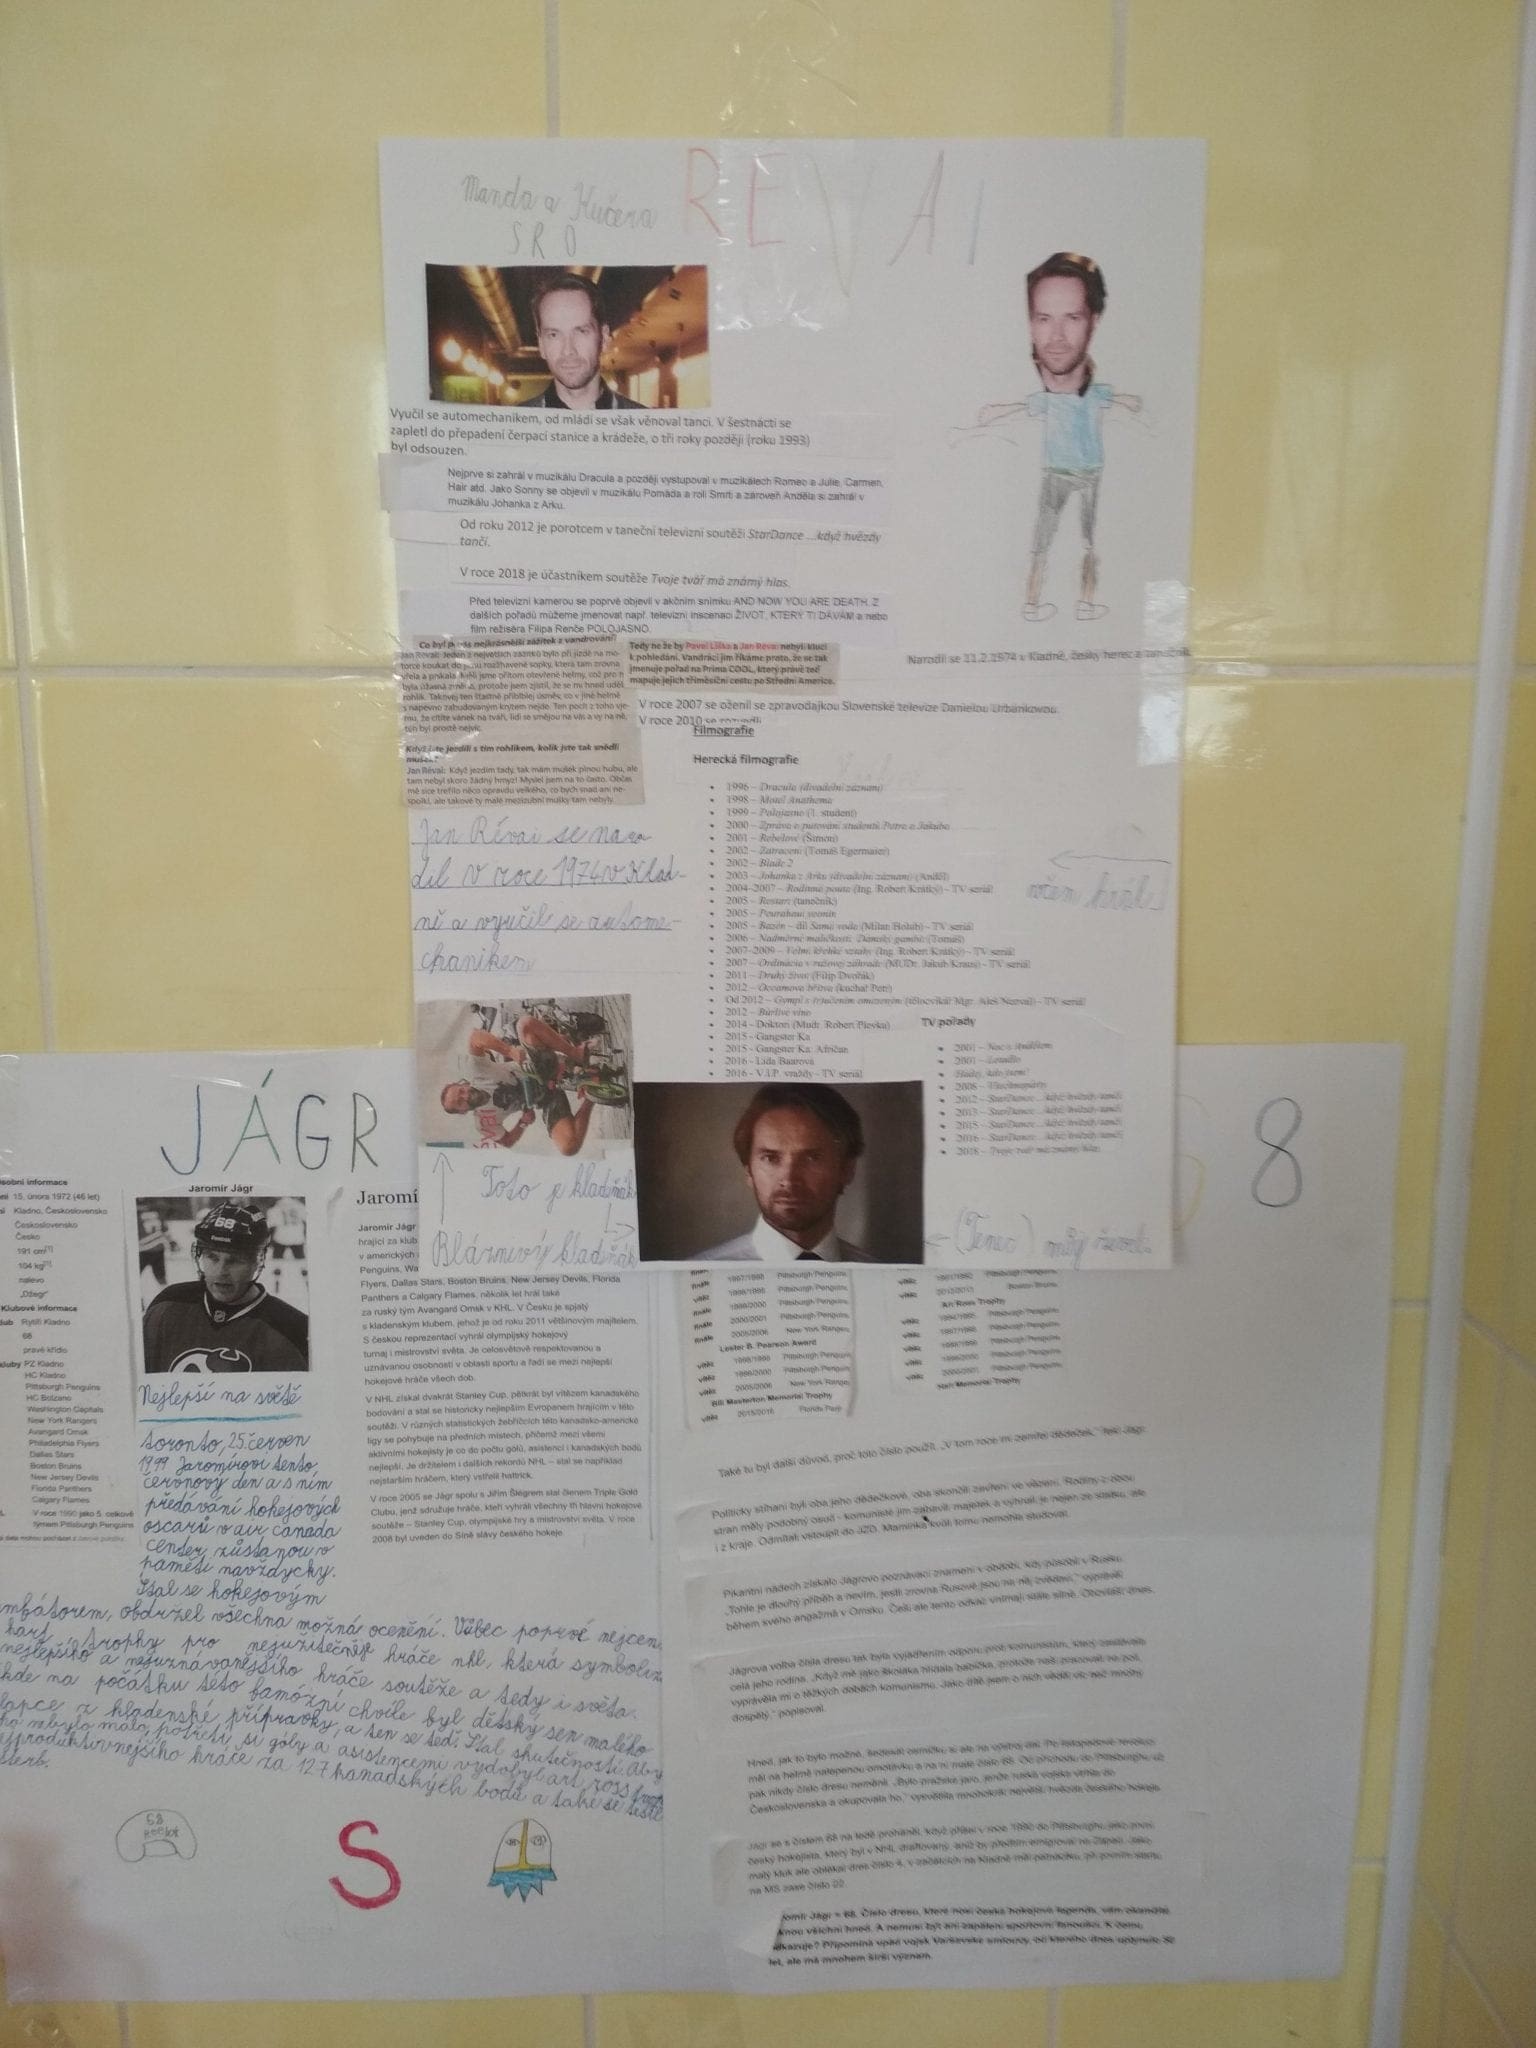 Manda a Kučera
S R O
RÉVAI
Vyučil se automechanikem, od mládí se však věnoval tanci. V šestnácti se
zapletl do přepadení čerpací stanice a krádeže, o tři roky později (roku 1993)
byl odsouzen.
Nejprve si zahrál v muzikálu Dracula a později vystupoval v muzikálech Romeo a Julie, Carmen,
Hair atd. Jako Sonny se objevil v muzikálu Pomáda a roli Smrti a zároveň Anděla si zahrál v
muzikálu Johanka z Arku.
Od roku 2012 je porotcem v taneční televizní soutěži StarDance ...když hvězdy
tančí.
V roce 2018 je účastníkem soutěže Tvoje tvář má známý hlas.
Před televizní kamerou se poprvé objevil v akčním snímku AND NOW YOU ARE DEATH. Z
dalších pořadů můžeme jmenovat např. televizní inscenaci ŽIVOT, KTERÝ TI DÁVÁM a nebo
film režiséra Filipa Renče POLOJASNO.
Co byl nejkrásnější zážitek z vandrování?
Jan Révai: Jeden z největších zážitků bylo při jízdě na mo-
torce koukat do rozžhavené sopky, která tam zrovna
vřela a prskala. Měli jsme přitom otevřené helmy, což pro
byla úžasná protože jsem zjistil, že se mi hned
rohlík. Takovej ten šťastně přiblblej úsměv, co v jiné helmě
s napevno zabudovaným krytem nejde. Ten pocit z toho vje-
mu, že cítíte vánek na tváři, lidi se smějou na vás a vy na ně,
ten byl prostě nejvíc.
Když jste jezdili s tím rohlíkem, kolik jste tak snědli
mušek?
Jan Révai: Když jezdím tady, tak mám mušek plnou hubu, ale
tam nebyl skoro žádný hmyz! Myslel jsem na to často. Občas
mě sice trefilo něco opravdu velkého, co bych snad ani ne-
spolkl, ale takové ty malé mezizubní mušky tam nebyly.
Tedy ne že by Pavel Liška a Jan Révai nebyli kluci
k pohledání. Vandráci jim říkáme proto, že se tak
jmenuje pořad na Prima COOL, který právě teď
mapuje jejich tříměsíční cestu po Střední Americe.
Narodil se 11.2.1974 v Kladně, český herec a tanečník.
V roce 2007 se oženil se zpravodajkou Slovenské televize Danielou Urbánkovou.
V roce 2010 se rozvedli
Filmografie
Herecká filmografie
1996 – Dracula (divadelní záznam)
1998 – Motel Anathema
1999 – Polojasno (1. student)
2000 – Zpráva o putování studentů Petra a Jakuba
2001 – Rebelové (Šimon)
2002 – Zatracení (Tomáš Egermaier)
2002 – Blade 2
2003 – Johanka z Arku (divadelní záznam) (Anděl)
2004–2007 – Rodinná pouta (Ing. Robert Krátký) - TV seriál
2005 – Restart (tanečník)
2005 – Pourahani yeonin
2005 – Bazén – díl Samá voda (Milan Holub) - TV seriál
2006 – Nadměrné maličkosti: Dámský gambit (Tomáš)
2007–2009 – Velmi křehké vztahy (Ing. Robert Krátký) - TV seriál
2007 – Ordinace v růžové zahradě (MUDr. Jakub Kraus) - TV seriál
2011 – Druhý život (Filip Dvořák)
2012 – Occamova břitva (kuchař Petr)
Od 2012 – Gympl s (r)učením omezeným (tělocvikář Mgr. Aleš Nezval) - TV seriál
2012 – Bouřlivé víno
2014 – Doktoři (Mudr. Robert Plevka)
2015 - Gangster Ka
2015 - Gangster Ka: Afričan
2016 - Lída Baarová
2016 - V.I.P. vraždy - TV seriál
v čem hrál
Jan Révai se naro
dil v roce 1974 v Klad-
ně a vyučil se autome-
chanikem
TV pořady
2001 – Noc s Andělem
2001 – Letadlo
Hádej, kdo jsem!
2008 – Všechnopárty
2012 – StarDance ...když hvězdy tančí
2013 – StarDance ...když hvězdy tančí
2015 – StarDance ...když hvězdy tančí
2016 – StarDance ...když hvězdy tančí
2018 – Tvoje tvář má známý hlas
Toto je kladeňák
Bláznivý kladeňák
JÁGR
8
Osobní informace
15. února 1972 (46 let)
Kladno, Československo
Československo
Česko
191 cm
104 kg
nalevo
„Džegr“
Klubové informace
Rytíři Kladno
68
pravé křídlo
kluby PZ Kladno
HC Kladno
Pittsburgh Penguins
HC Bolzano
Washington Capitals
New York Rangers
Avangard Omsk
Philadelphia Flyers
Dallas Stars
Boston Bruins
New Jersey Devils
Florida Panthers
Calgary Flames
V roce 1990 jako 5. celkově
týmem Pittsburgh Penguins
Jaromír Jágr
68
Nejlepší na světě
toronto, 25. červen
1999 Jaromírovi tento
červnový den a s ním
předávání hokejových
oscarů v air canada
center zůstanou v
paměti navždycky.
Stal se hokejovým
obdržel všechna možná ocenění. Vůbec poprvé
hart trophy pro nejužitečněj hráče nhl, která
nejlepšího a nejuznávanějšího hráče soutěže a tedy i světa.
kde na počátku této famózní chvíle byl dětský sen malého
z kladenské přípravky, a ten se teď stal skutečností. Aby
málo, potřetí si góly a asistencemi vydobyl art ross
nejproduktivnějšího hráče za 127 kanadských bodů a také se
Jaromí
Jaromír Jágr
hrající za klub
v amerických
Penguins, Wa
Flyers, Dallas Stars, Boston Bruins, New Jersey Devils, Florida
Panthers a Calgary Flames, několik let hrál také
za ruský tým Avangard Omsk v KHL. V Česku je spjatý
s kladenským klubem, jehož je od roku 2011 většinovým majitelem.
S českou reprezentací vyhrál olympijský hokejový
turnaj i mistrovství světa. Je celosvětově respektovanou a
uznávanou osobností v oblasti sportu a řadí se mezi nejlepší
hokejové hráče všech dob.
V NHL získal dvakrát Stanley Cup, pětkrát byl vítězem kanadského
bodování a stal se historicky nejlepším Evropanem hrajícím v této
soutěži. V různých statistických žebříčcích této kanadsko-americké
ligy se pohybuje na předních místech, přičemž mezi všemi
aktivními hokejisty je co do počtu gólů, asistencí i kanadských bodů
nejlepší. Je držitelem i dalších rekordů NHL – stal se například
nejstarším hráčem, který vstřelil hattrick.
V roce 2005 se Jágr spolu s Jiřím Šlégrem stal členem Triple Gold
Clubu, jenž sdružuje hráče, kteří vyhráli všechny tři hlavní hokejové
soutěže – Stanley Cup, olympijské hry a mistrovství světa. V roce
2008 byl uveden do Síně slávy českého hokeje.
1999/2000 Pittsburgh Penguins
2000/2001 Pittsburgh Penguins
2005/2006 New York Rangers
Lester B. Pearson Award
vítěz 1998/1999 Pittsburgh Penguins
vítěz 1999/2000 Pittsburgh Penguins
vítěz 2005/2006 New York Rangers
Bill Masterton Memorial Trophy
vítěz 2015/2016 Florida Pant
Art Ross Trophy
vítěz 1994/1995 Pittsburgh Penguins
vítěz 1997/1998 Pittsburgh Penguins
vítěz 1998/1999 Pittsburgh Penguins
vítěz 1999/2000 Pittsburgh Penguins
vítěz 2000/2001 Pittsburgh Penguins
Hart Memorial Trophy
Také tu byl další důvod, proč toto číslo použil. „V tom roce mi zemřel dědeček,“ řekl Jágr.
Politicky stíhaní byli oba jeho dědečkové, oba skončili zavření ve vězení. Rodiny z obou
stran měly podobný osud - komunisté jim zabavili majetek a vyhnali je nejen ze statku, ale
i z kraje. Odmítali vstoupit do JZD. Maminka kvůli tomu nemohla studovat.
Pikantní nádech získalo Jágrovo poznávací znamení v období, kdy působil v Rusku.
„Tohle je dlouhý příběh a nevím, jestli zrovna Rusové jsou na něj zvědaví,“ vyprávěl
během svého angažmá v Omsku. Češi ale tento odkaz vnímali stále silně. Obzvlášť dnes.
Jágrova volba čísla dresu tak byla vyjádřením odporu proti komunistům, který zastávala
celá jeho rodina. „Když mě jako školáka hlídala babička, protože naši pracovali na poli,
vyprávěla mi o těžkých dobách komunismu. Jako dítě jsem o nich věděl víc než mnohý
dospělý,“ popisoval.
Hned, jak to bylo možné, šedesát osmičku si ale na výstroj dal. Po listopadové revoluci
měl na helmě nalepenou omotávku a na ní malé číslo 68. Od příchodu do Pittsburghu už
pak nikdy číslo dresu neměnil. „Bylo pražské jaro, jenže ruská vojska vtrhla do
Československa a okupovala ho,“ vysvětlila mnohokrát největší hvězda českého hokeje.
Jágr se s číslem 68 na ledě proháněl, když přišel v roce 1990 do Pittsburghu jako první
český hokejista, který byl v NHL draftovaný, aniž by předtím emigroval na Západ. Jako
malý kluk ale oblékal dres číslo 4, v začátcích na Kladně měl patnáctku, při prvním startu
na MS zase číslo 22.
omír Jágr = 68. Číslo dresu, které nosí česká hokejová legenda, vám okamžitě
knou všichni hned. A nemusí být ani zapálení sportovní fanoušci. K čemu
dkazuje? Připomíná vpád vojsk Varšavské smlouvy, od kterého dnes uplynulo 50
let, ale má mnohem širší význam.
68
Reebok
S